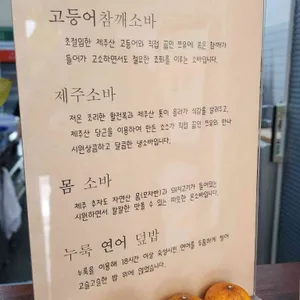 고등어참깨소바
초절임한 제주산 고등어와 직접 끓인 쯔유에 볶은 참깨가
들어가 고소하면서도 절묘한 조화를 이루는 소바입니다.
제주소바
저온 조리한 활전복과 제주산 톳이 올라가 식감을 살려주고,
제주산 당근을 이용하여 만든 소스가 직접 끓인 쯔유와 만나
시원상큼하고 달콤한 냉소바입니다.
몸 소바
제주 추자도 자연산 몸(모자반)과 돼지고기가 들어있는
시원하면서 칼칼한 맛을 볼 수 있는 따뜻한 온소바입니다.
누룩 연어 덮밥
누룩을 이용해 18시간 이상 숙성시킨 연어를 도톰하게 썰어
고슬고슬한 밥 위에 얹었습니다.